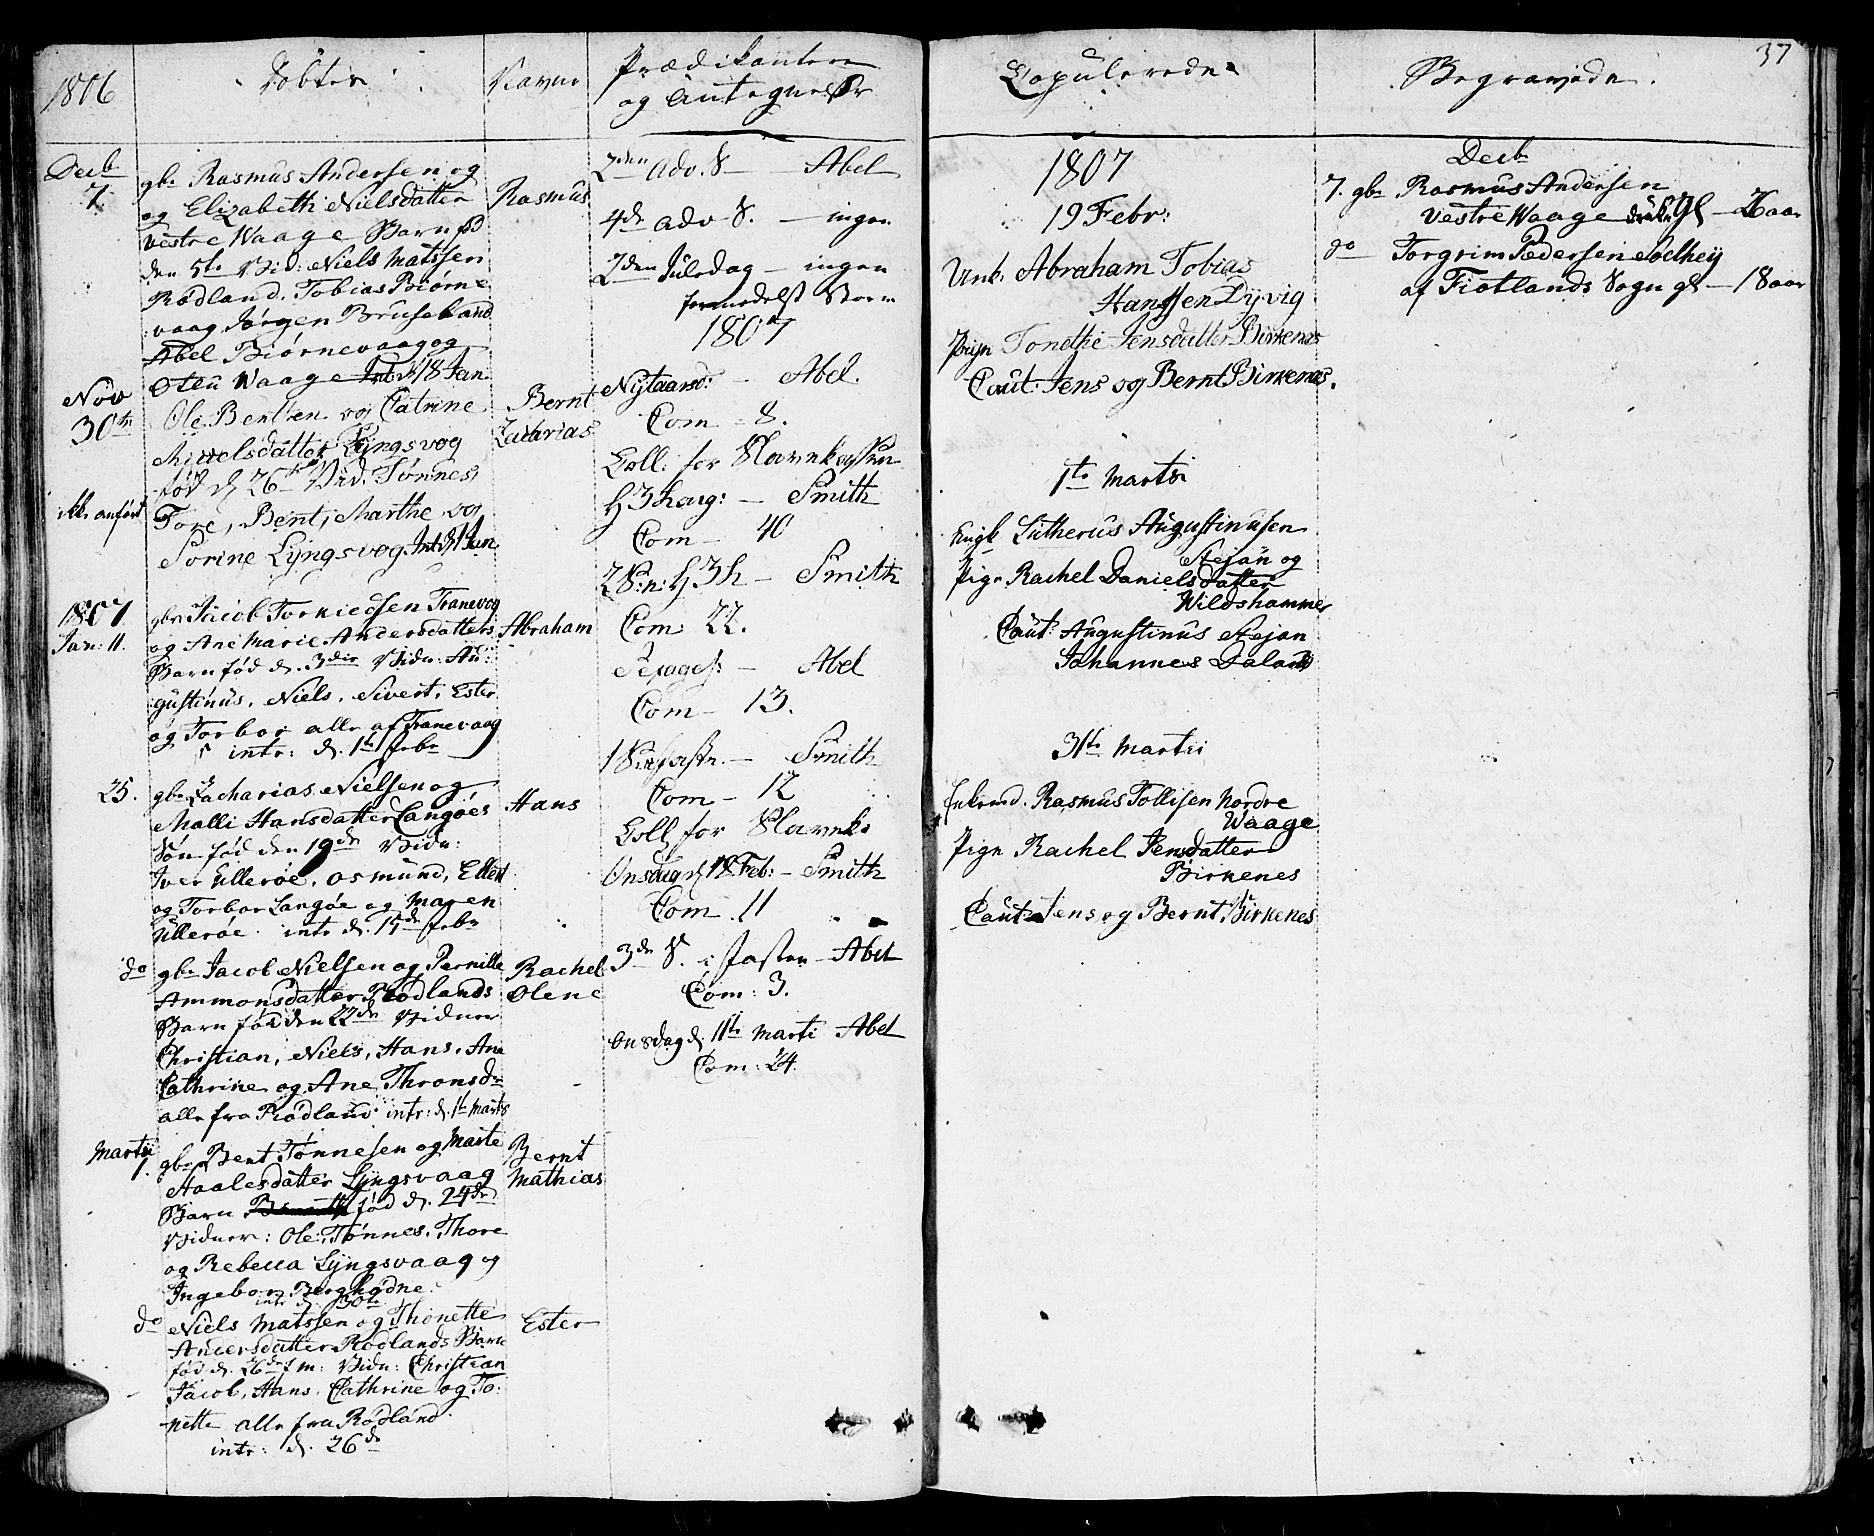 37
1806
Døbte
Navne
Prædikantere
og Antegnelser
Copulerede
Begravede
Decb
7.
gbr Rasmus Andersen og
og Elizabeth Nielsdatter
Vestre Waage Barn fød
den 5te Vid: Niels Matssen
Rødland. Tobias Biørne
vaag Jørgen Bruseland
Abel Biørnevaag og
Waage Intr d. 18 Jan
Rasmus
Nov
30te
ikke anført
Ole Bentsen og Catrine
Michelsdatter Lyngsvog
fød d. 26 Vid. Tønnes,
Tore, Bent, Marthe og
Sorine Lyngsvog. Int. d. 1 Jan
Bernt
Zacharias
1807
Jan: 11.
gbr Jacob Torkiedsen Tranevog
og Ane Marie Andersdatters
Barn fød d. 3die Vidn: Au:
gustinus, Niels, Sivert, Ester
og Torbor alle af Tranevaag
intr: d. 1te febr
Abraham
25.
gbr Zacharias Nielsen og
Malli Hansdatter Langøes
Søn fød den 19de Vidn:
Iver Ullerøe, Osmund, Ellert
og Torbor Langøe og Maren
Ullerøe. intr d. 15de febr
Hans
do
gbr Jacob Nielsen og Pernille
Ammonsdatter Rødlands
Barn fød den 22de Vidner
Christian, Niels, Hans, Ane
Cathrine og Ane Thronsdr
alle fra Rødland intr: d. 1te Marts
Rachel
Olene
Martii
1.
gbr Bent Tønnesen og Marte
Aalesdatter Lyngsvaag
Barn fød d. 24de
Vidner: Ole, Tønnes, Thore
og Rebecca Lyngsvaag og
Ingebor Berghødne
intr d. 30te
Bernt
Mathias
do
Niels Matssen og Thonette
Andersdatter Rødlands Barn
fød d. 26de f m: Vidn: Christian
Jacob, Hans, Cathrine og To:
nette alle fra Rødland.
intr: d. 26de
Ester
2den Adv. S — Abel
4de Adv S. — ingen
2den Juledag — ingen
formedelst Storm
1807
Nytaarsd: — Abel.
Com — 8.
Coll: for
H 3 Kong: — Smith
Com — 40
2 S: n: H 3 K — Smith
Com: 22.
Sexages: — Abel
Com — 13.
1 S: i faste — Smith
Com — 12
Coll for
Onsdag d. 18 Feb: — Smith
Com. 11
3de S. i Fasten — Abel
Com: 3.
Onsdag d. 11te Marti Abel
Com: 24.
1807
19 Febr:
Unk. Abraham Tobias
Hanssen Dyvig
Pign Tonethe Jensdatter Birkenes
Caut: Jens og Bernt Birkenes.
1te Martii
Ungk Lutherus Augustinusen
Stejan og
Pign Rachel Danielsdatter
Wildshammer
Caut: Augustinus Stejan
Johannes Daland
31te Martii
Enkemd. Rasmus Tollisen Nordre
Waage
Pign Rachel Jensdatter
Birkenes
Caut Jens og Bernt Birkenes
Decb
7. gbr Rasmus Andersen
Vestre Waage gl —
do Torgrim Pedersen
af Fiotlands Sogn gl — 18 aar